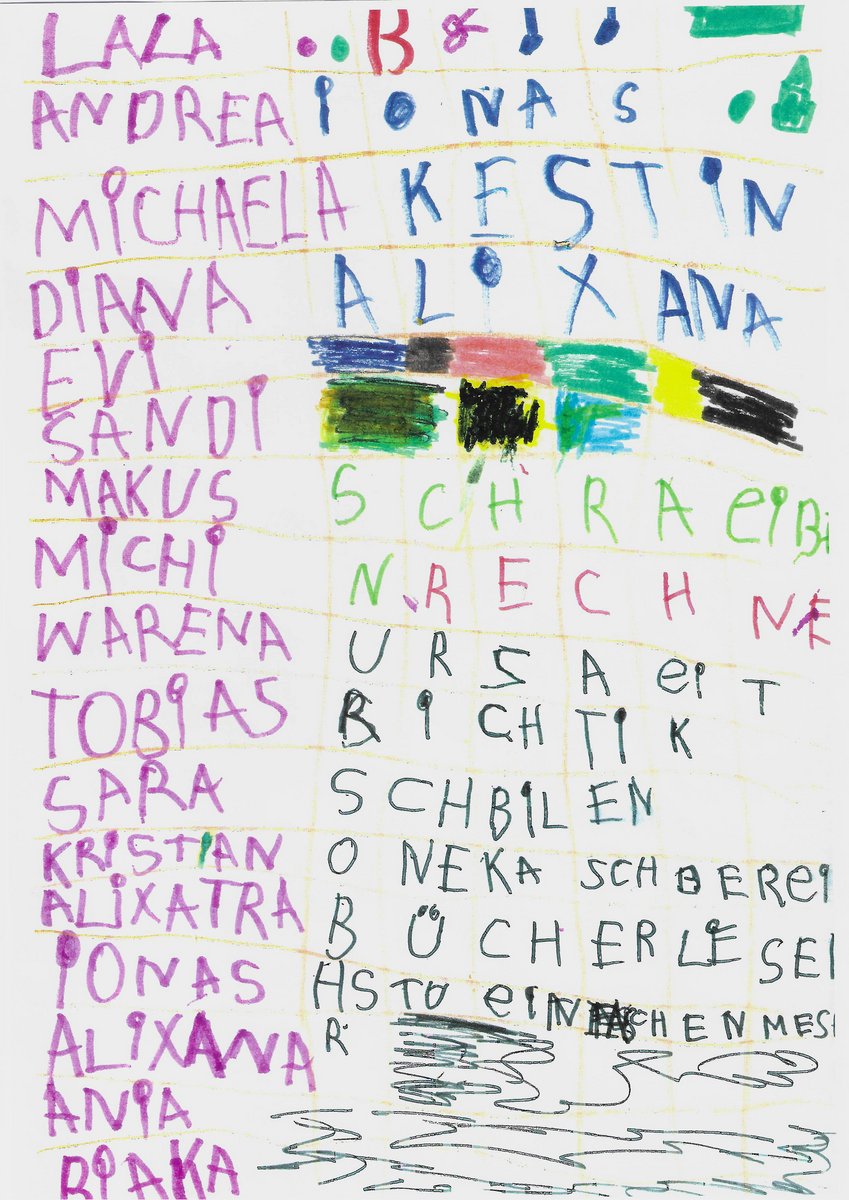 LALA B
ANDREA iONAS
MiCHAELA KESTiN
DiANA ALiXANA
EVi
SANDi
MAKUS SCHRAeiBi
MiCHi NRECHNE
WARENA URSAeiT
TOBiAS BiCHTiK
SARA SCHBiLEN
KRiSTiAN ONEKA SCHBEREi
ALiXATRA BÜCHERLESEI
iONAS HSTU eiN CHENMESI
ALiXANA R
ANiA
RiAKA